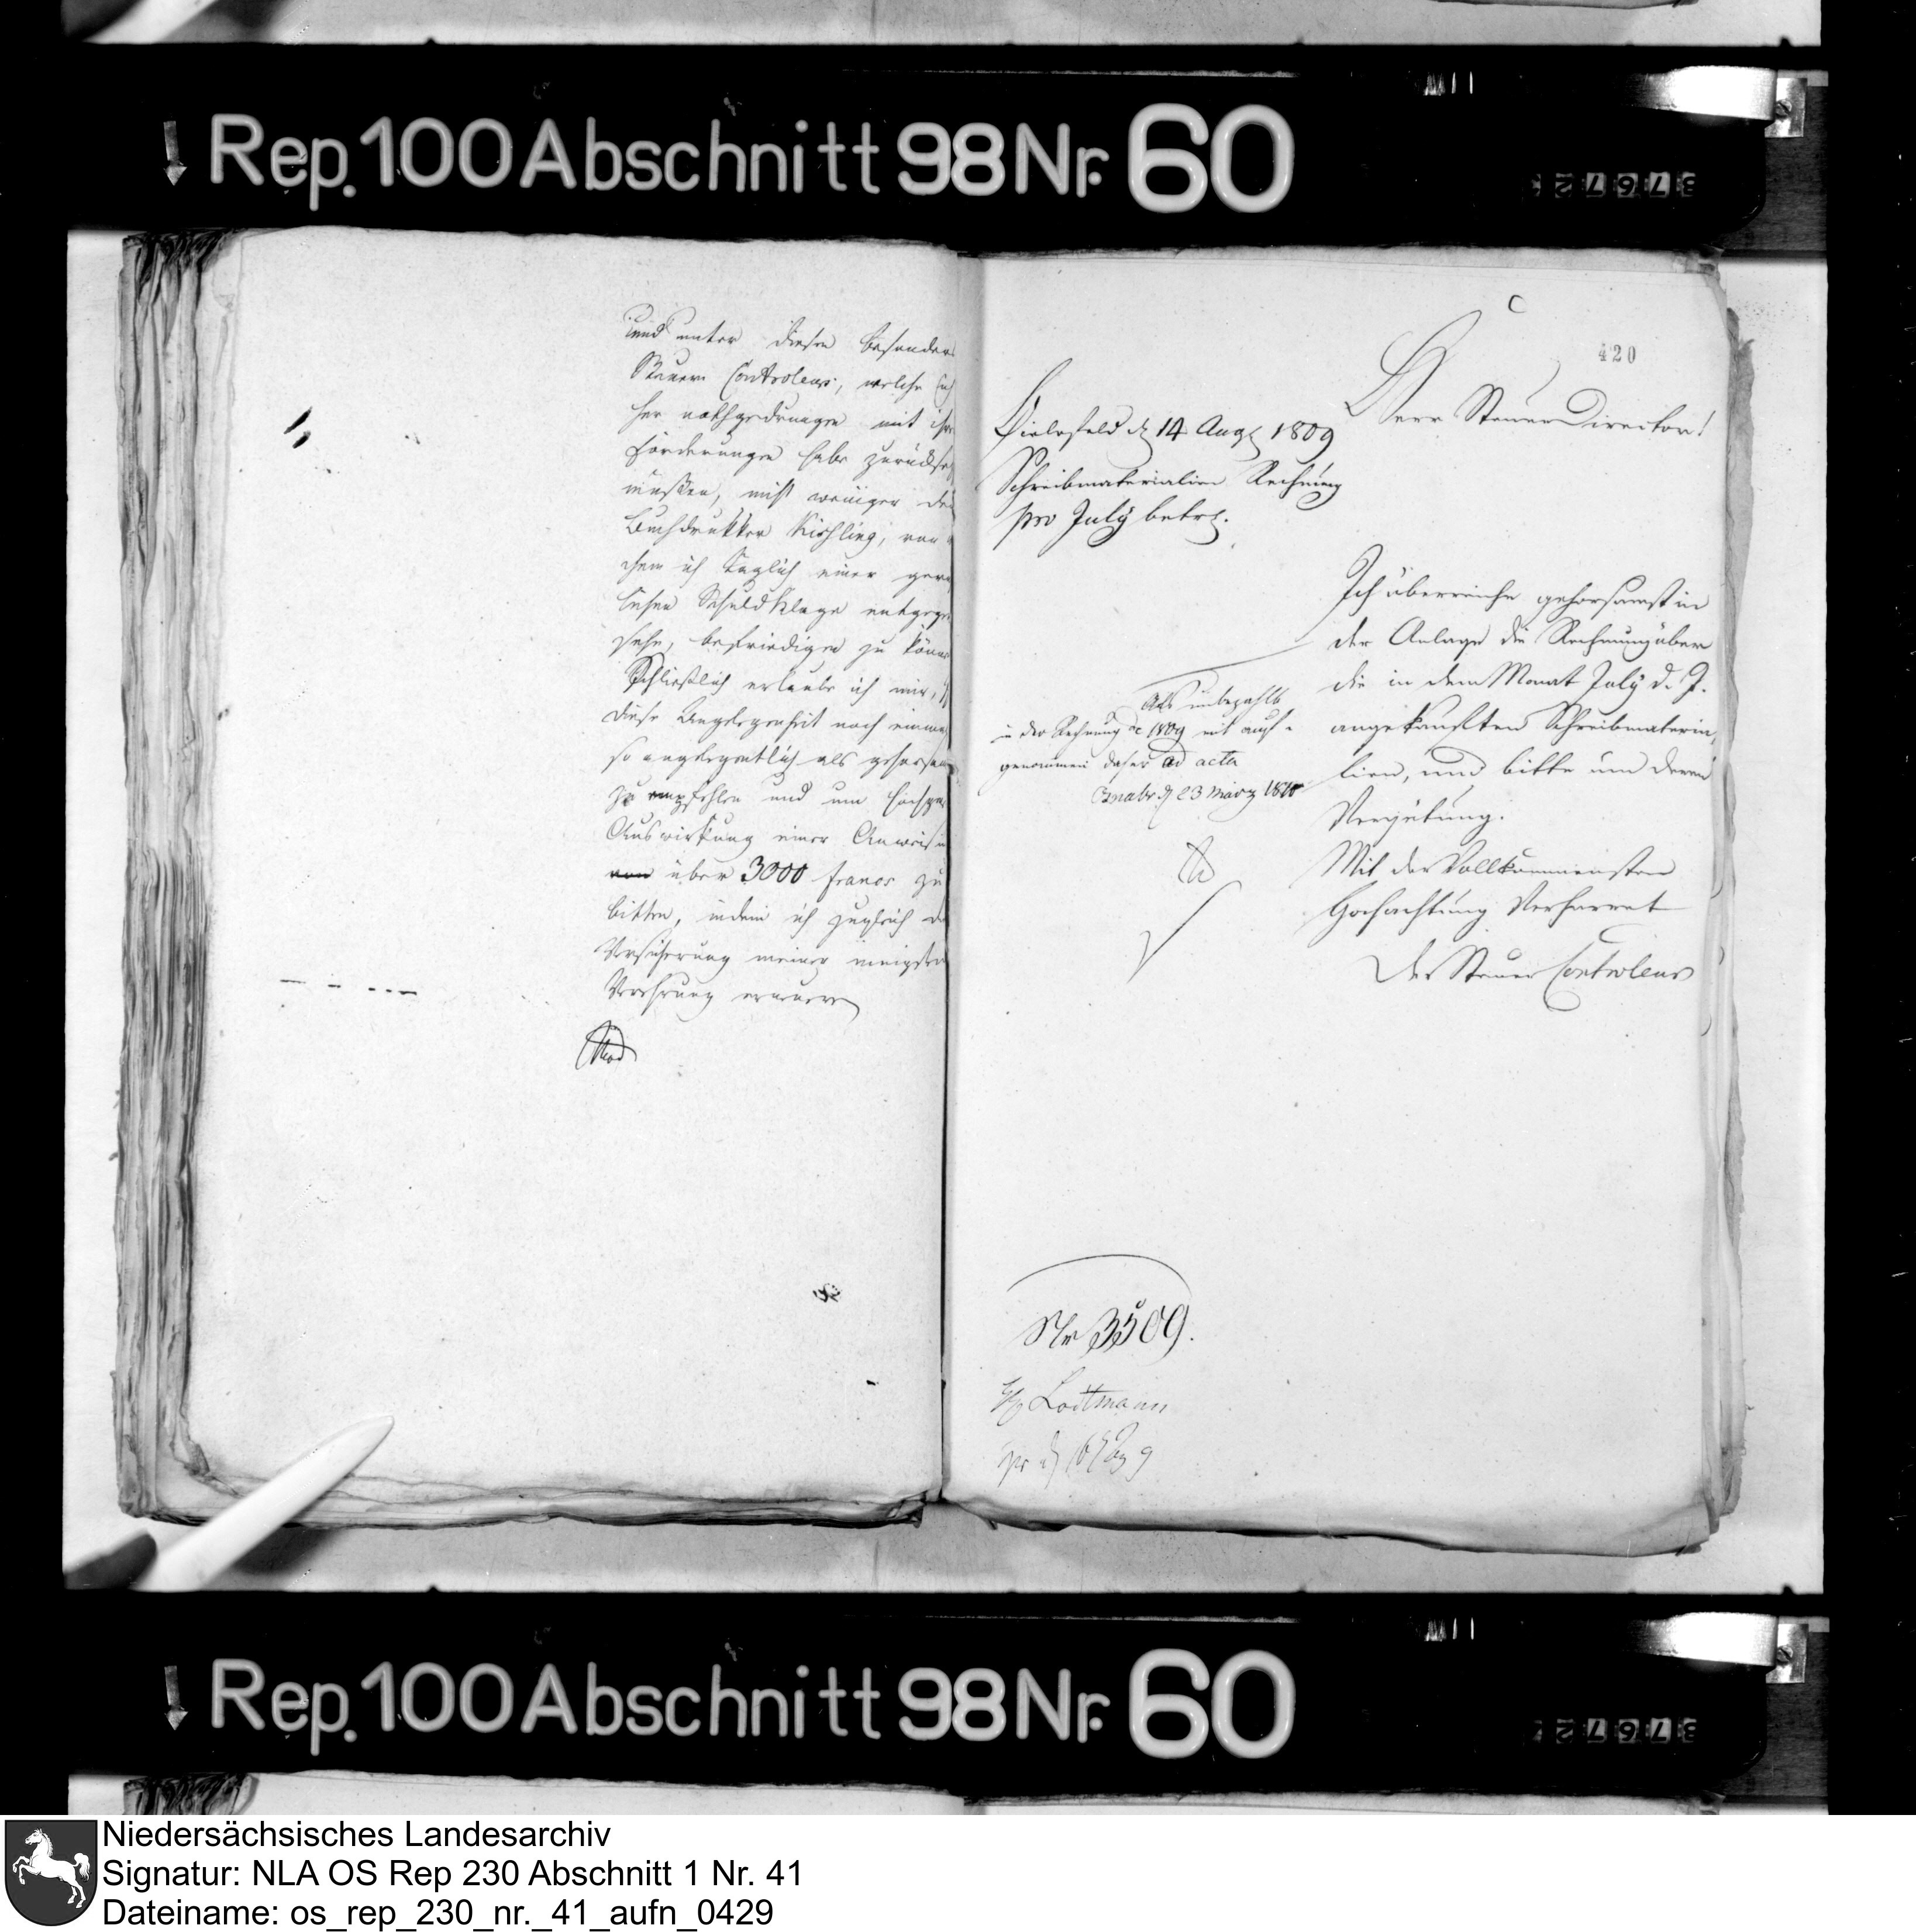 Rep. 100 Abschnitt 98 Nr. 60
und unter diesen besonders
Steuer Controleur, welche
her nothgedrungen mit ihren
Forderungen habe zurücksetz
müssen, nicht weniger den
Buchdrukker Kisling, von
chem ich täglich einer
Schuldklage entgegen
sehe, befriedigen zu können
Schließlich erlaube ich mir,
diese Angelegenheit noch einmal
so angelegentlich als gehorsam
zu empfehlen und um
Auswirkung einer Anweisu
von über 3000 francs zu
bitten, indem ich zugleich
Versicherung meiner innigsten
Verehrung erneuere
420
Herr Steuer Director!
Bielefeld d 14 Aug 1809
Schreibmaterialien Rechnung
pro July betr.
Ich überreiche gehorsamst in
der Anlage die Rechnung über
die in dem Monat July d. J.
angekauften Schreibmateria,
lien, und bitte um deren
Vergütung.
Mit der Vollkommensten
Hochachtung Verharret
Der Steuer Controleur
Als unbezahlt
in der Rechnung de 1809 mit auf-
genommen daher ad acta
Osnabr d 23 März 1810
Nr 3509.
Lodtmann
Rep. 100 Abschnitt 98 Nr. 60
Niedersächsisches Landesarchiv
Signatur: NLA OS Rep 230 Abschnitt 1 Nr. 41
Dateiname: os_rep_230_nr._41_aufn_0429